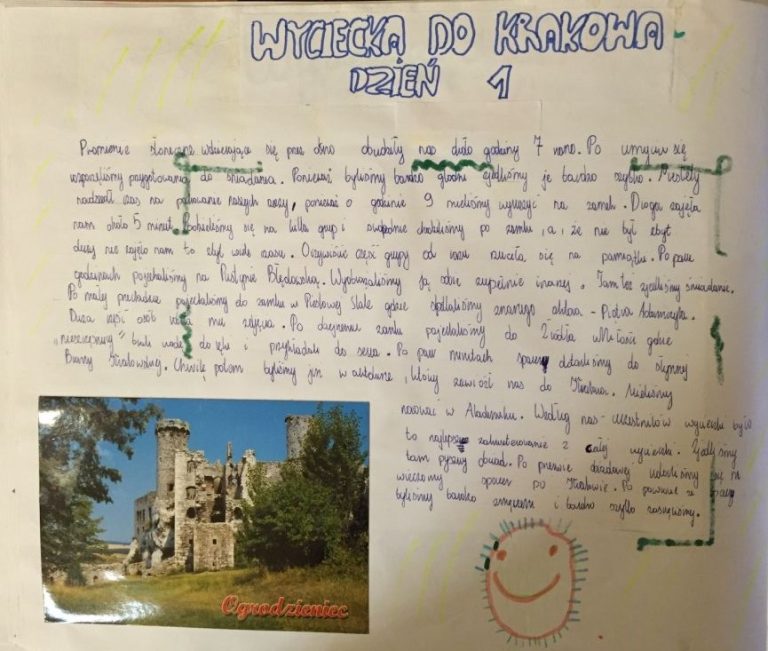 WYCIECKA DO KRAKOWA
DZIEŃ 1
Promienie słoneczne wdzierające się przez okno obudziły nas około godziny 7 rano. Po umyciu się
wspanialiśmy do śniadania. Ponieważ byliśmy bardzo głodni zjedliśmy je bardzo szybko. Niestety
nadszedł czas na pakowanie naszych rzeczy, ponieważ o godzinie 9 mieliśmy wyruszyć na zamek. Droga zajęła
nam około 5 minut. się na kilka grup i swobodnie chodziliśmy po zamku, a, że nie był zbyt
duży nie zajęło nam to zbyt wiele czasu. Oczywiście część grupy od razu rzuciła się na pamiątki. Po paru
godzinach pojechaliśmy na Pustynię Błędowską. Wyobrażaliśmy ją sobie zupełnie inaczej. Tam też zjedliśmy śniadanie.
Po małej przekąsce pojechaliśmy do zamku w Pieskowej Skale gdzie spotkaliśmy znanego aktora - Piotra Adamczyka.
Duża część osób mu zdjęcia. Po obejrzeniu zamku pojechaliśmy do Źródła Miłości gdzie
"nieszczęśnicy" brali wodę do ręki i przykładali do serca. Po paru minutach spaceru dotarliśmy do słynnej
Bramy Krakowskiej. Chwilę potem byliśmy już w autokarze, który zawiózł nas do Krakowa. Mieliśmy
nocować w Akademiku. Według nas - uczestników wycieczki było
to najlepsze zakwaterowanie z całej wycieczki. Zjedliśmy
tam pyszny obiad. Po przerwie obiadowej udaliśmy się na
wieczorny spacer po Krakowie. Po powrocie ze spaceru
byliśmy bardzo zmęczeni i bardzo szybko zasnęliśmy.
Ogrodzieniec